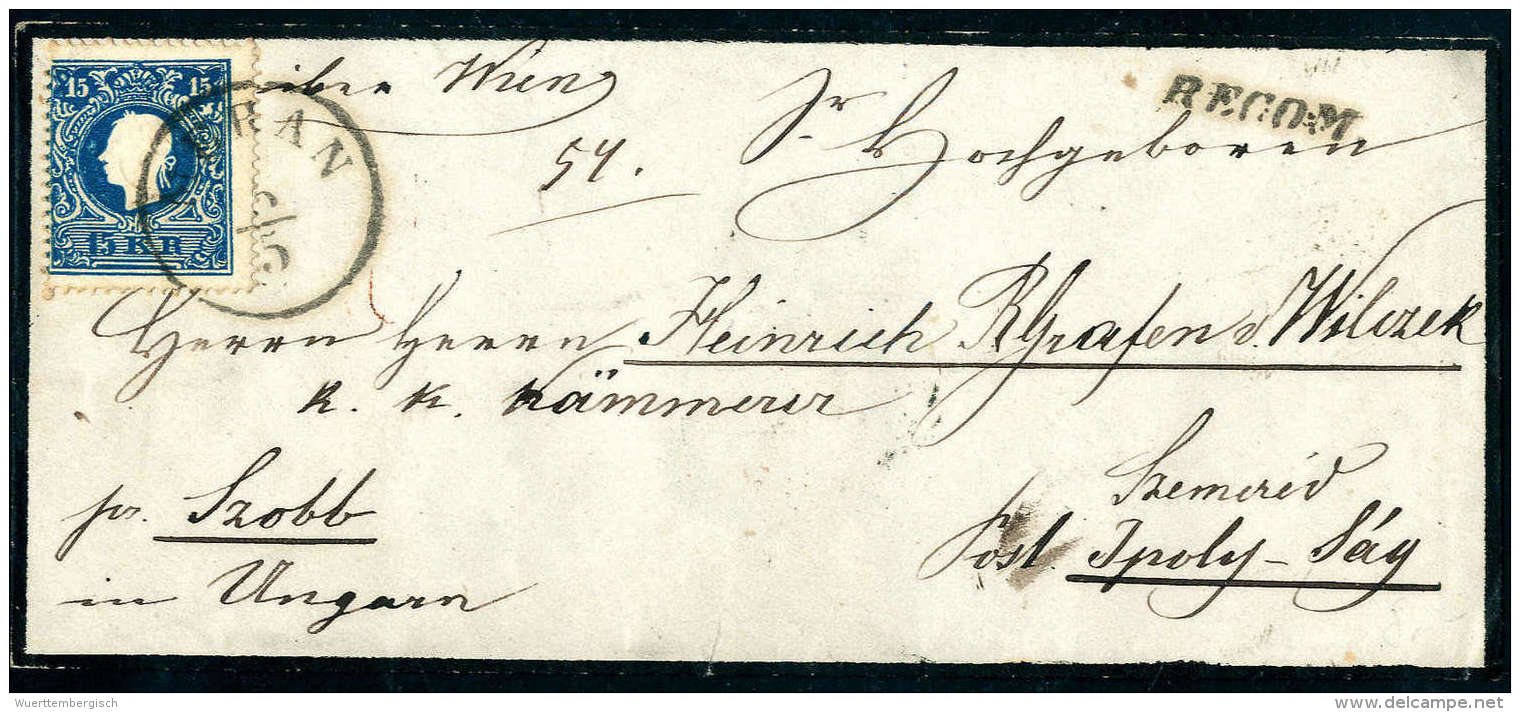 über Wien
RECOM.
15 15
MERAN
6/6
15 KR
54.
Sr Hochgeboren
Herrn Herrn Heinrich RGrafen v. Wilczek
k. k. Kämmerer
pr. Szobb
in Ungarn
Szemeréd
Post Ipoly-Ság
Wuerttembergisch
www.delcampe.net